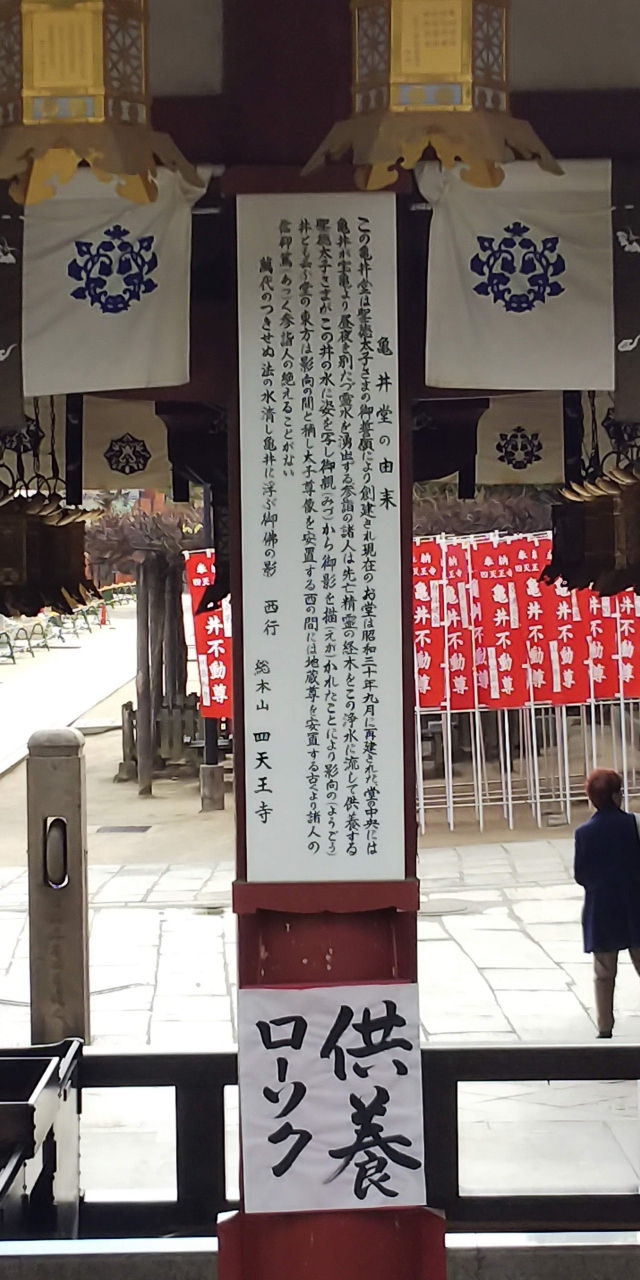 亀井堂の由来
この亀井堂は聖徳太子さまの御誓願により創建され現在のお堂は昭和三十年九月に再建された、堂の中央には
亀井が宝亀より昼夜を別たづ霊水を湧出する参詣の諸人は先亡精霊の経木をこの浄水に流して供養する
聖徳太子さまがこの井の水に姿を写し御親(みづ)から御影を描(えが)かれたことにより影向の(ようごう)
井とも云う堂の東方は影向の間と称し太子尊像を安置する西の間には地蔵尊を安置する古くより諸人の
信仰篤(あつ)く参詣人の絶えることがない
萬代のつきせぬ法の水清し亀井に浮ぶ御佛の影 西行
総本山 四天王寺
供養
ローソク
奉納
四天王寺
亀井不動尊